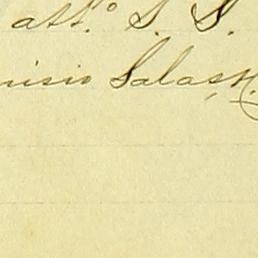 att.º S. S.
nisio Salas